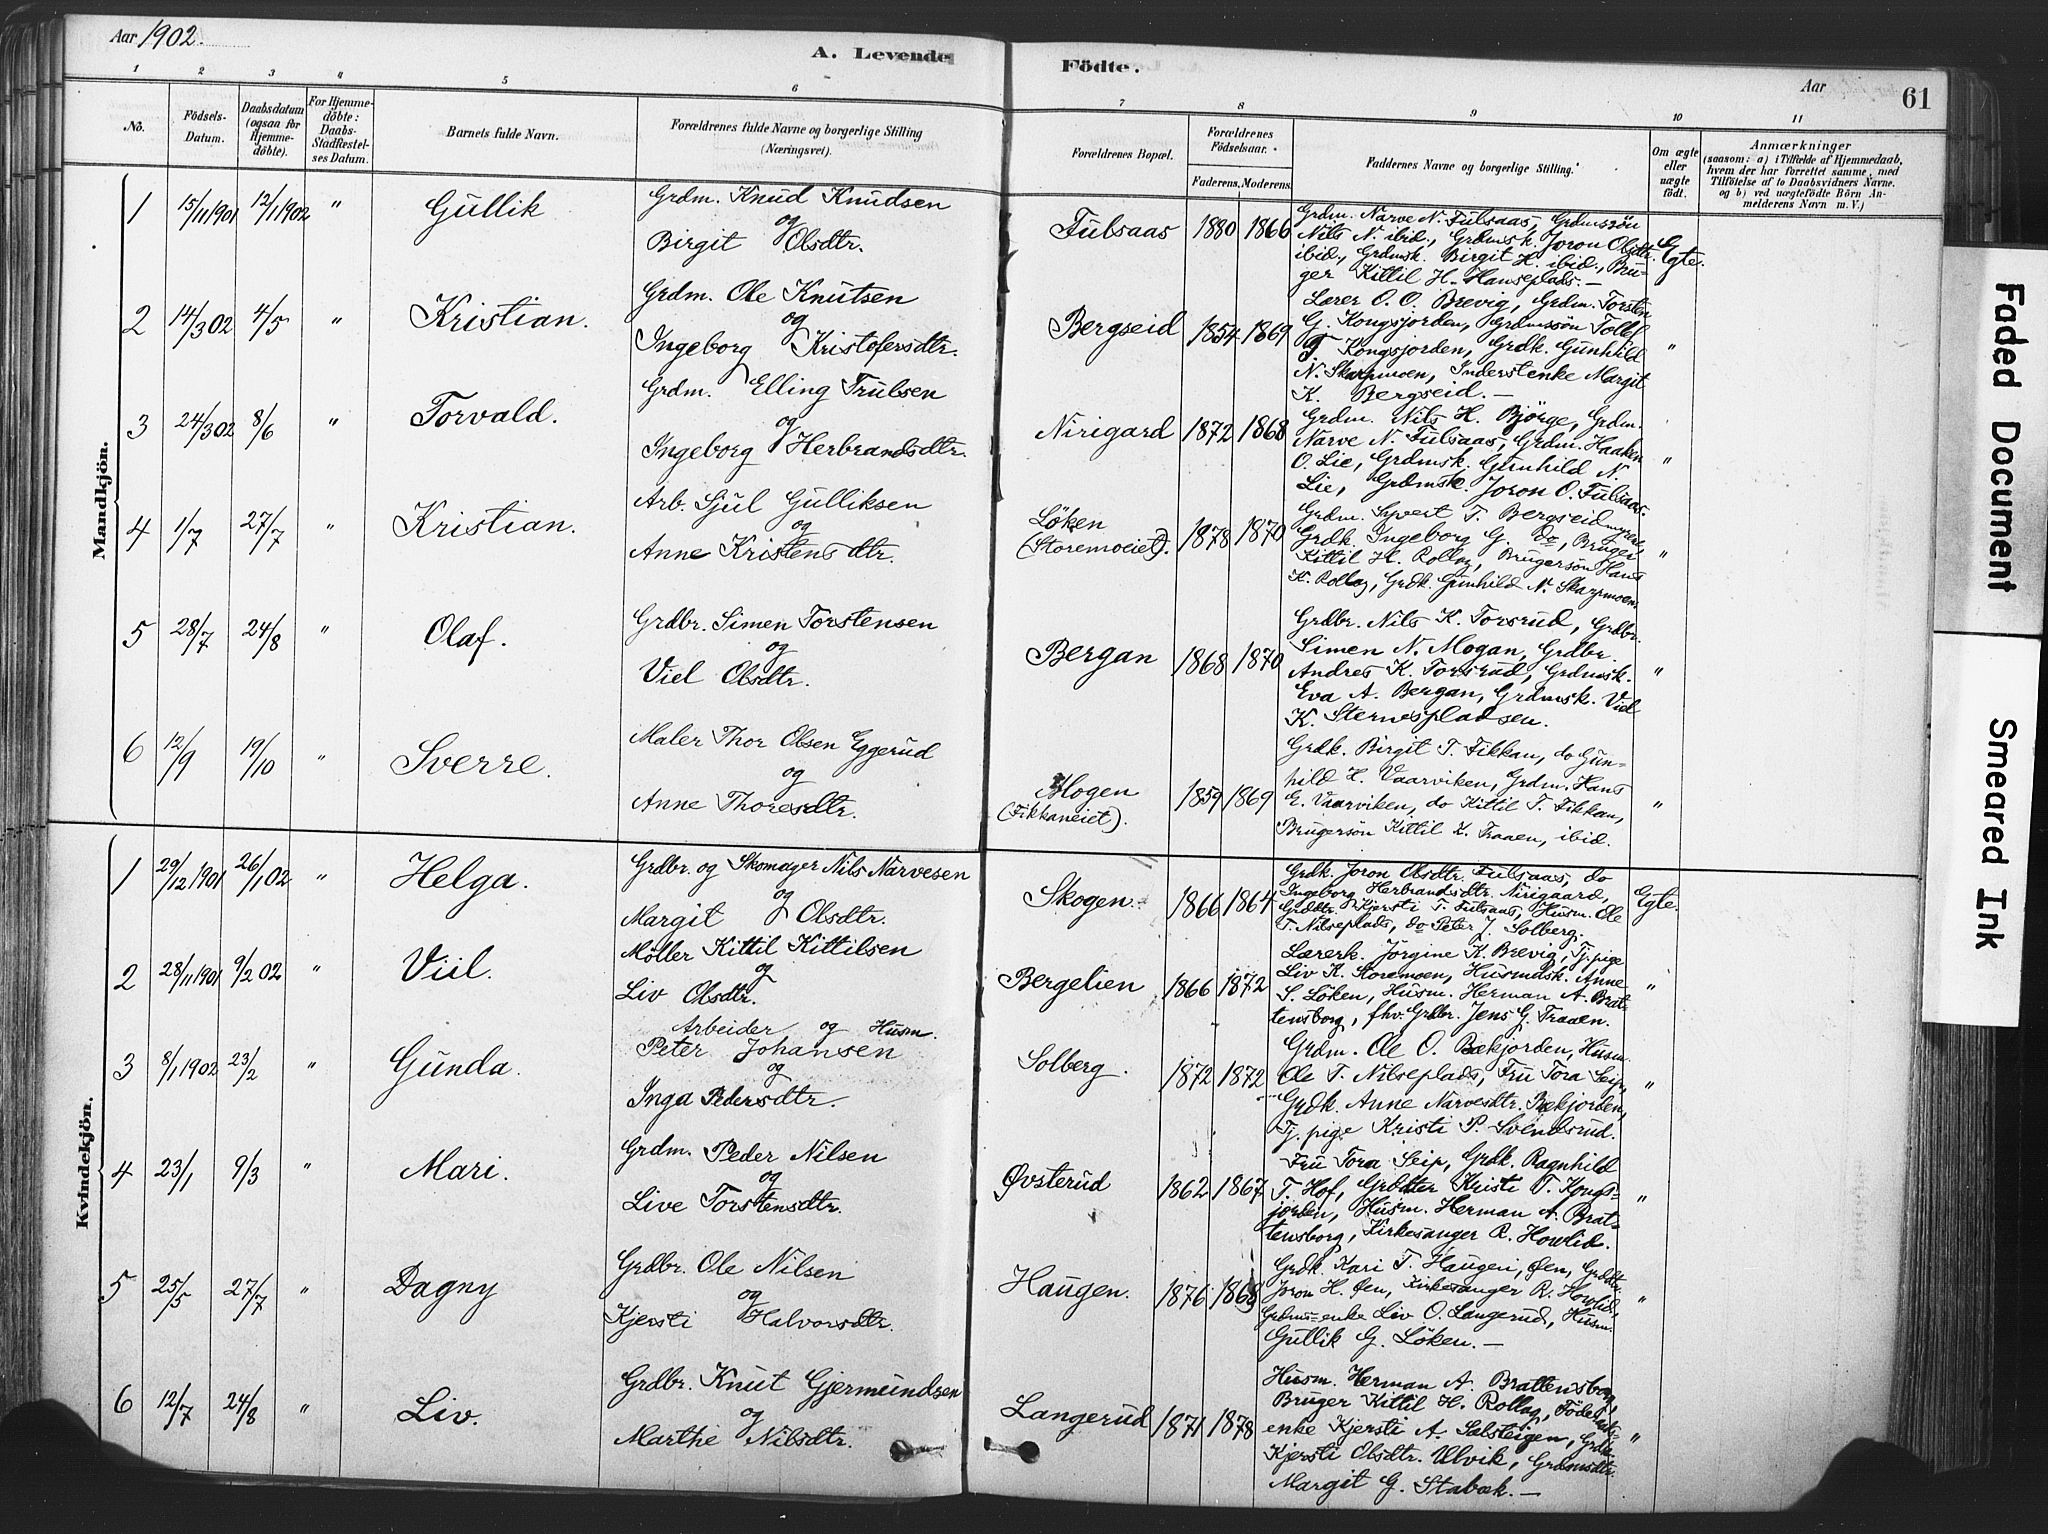 Aar 1902.
A. Levende Födte.
Aar
61
1 2 3 " 5 6 7 8 9 10 11
No.
Födsels-Datum.
Daabsdatum (ogsaa for Hjemme-döbte).
For Hjemme-döbte: Daabs-Stadfæstel-ses Datum.
Barnets fulde Navn.
Forældrenes fulde Navne og borgerlige Stilling (Næringsvei).
Forældrenes Bopæl.
Forældrenes Födselsaar.
Faderens. Moderens.
Faddernes Navne og borgerlige Stilling.
Om ægte eller uægte födt.
Anmærkninger
(saasom: a) i Tilfælde af Hjemmedaab, hvem der har forrettet samme, med Tilföielse af to Daabsvidners Navne, og b) ved uægtefödte Börn An-melderens Navn m. V.)
Mandkjön.
1 15/11 1901 12/1 1902 " Gullik
Grdm. Knud Knudsen
og
Birgit Olsdtr.
Fulsaas 1880 1866
Grdm. Narve N. Fulsaas, Grdmssön
Nils N. ibid., Grdmsk. Joron Olsdtr.
ibid., Grdmsk. Birgit H. ibid., Bru-
ger Kittil H. Hanseplads. —
Egte.
2 14/3 02 4/5 " Kristian.
Grdm. Ole Knutsen
og
Ingeborg Kristofersdtr.
Bergseid 1854 1869
Lærer O. O. Brevig, Grdm. Torsten
G. Kongsjorden, Grdmssön Tollef
T. Kongsjorden, Grdk. Gunhild
N. Skarpmoen, Inderstenke Margit
K. Bergseid. —
"
3 24/3 02 8/6 " Torvald.
Grdm. Elling Trulsen
og
Ingeborg Herbrandsdtr.
Nirigard 1872 1868
Grdm. Nils H. Björge, Grdm.
Narve N. Fulsaas, Grdm. Haaken
O. Lie, Grdmsk. Gunhild N.
Lie, Grdmsk. Joron O. Fulsaas.
"
4 1/7 27/7 " Kristian.
Arb. Sjul Gulliksen
og
Anne Kristensdtr.
Löken
(Storemoeiet). 1878 1870
Grdm. Syvert T. Bergseidmyren,
Grdk. Ingeborg G. do, Bruger
Kittil H. Rollag, Brugersön Hans
K. Rollag, Grdk. Gunhild N. Skarpmoen.
"
5 28/7 24/8 " Olaf.
Grdbr. Simen Torstensen
og
Viel Olsdtr.
Bergan 1868 1870
Grdbr. Nils K. Torsrud, Grdbr.
Simen N. Mogan, Grdbr.
Andres K. Torsrud, Grdmsk.
Eva A. Bergan, Grdmsk. Viel
K. Sternespladsen.
"
6 12/9 19/10 " Sverre.
Maler Thor Olsen Eggerud
og
Anne Thoresdtr.
Mogen
(Fikkaneiet). 1859 1869
Grdk. Birgit T. Fikkan, do Gun-
hild H. Vaarviken, Grdm. Hans
E. Vaarviken, do Kittil T. Fikkan,
Brugersön Kittil K. Traaen, ibid.
"
Kvindekjön.
1 29/12 1901 26/1 02 " Helga.
Grdbr. og Skomager Nils Narvesen
og
Margit Olsdtr.
Skogen. 1866 1864
Grdk. Joron Olsdtr. Fulsaas, do
Ingeborg Herbrandsdtr. Nirigaard,
Grddtr. Kjersti T. Fulsaas, Husm. Ole
T. Nilseplads, do Peter J. Solberg.
Egte.
2 28/11 1901 9/2 02 " Viil.
Möller Kittil Kittilsen
og
Liv Olsdtr.
Bergelien 1866 1872
Lærerk. Jörgine K. Brevig, Tj. pige
Liv K. Storemoen, Husmdsk. Anne
S. Löken, Husm. Herman A. Brat-
tensborg, fhv. Grdbr. Jens G. Traaen.
"
3 8/1 1902 23/2 " Gunda.
Arbeider og Husm.
Peter Johansen
og
Inga Pedersdtr.
Solberg. 1872 1872
Grdm. Ole O. Bækjorden, Husm.
Ole T. Nilseplads, Fru Tora Seip,
Grdk. Anne Narvesdtr. Bækjorden,
Tj. pige Kristi P. Svendsrud.
"
4 23/1 9/3 " Mari.
Grdm. Peder Nilsen
og
Live Torstensdtr.
Øvsterud 1862 1867
Fru Tora Seip, Grdk. Ragnhild
T. Hof, Grddtter Kristi T. Kongs-
jorden, Husm. Herman A. Brat-
tensborg, Kirkesanger R. Howlid.
"
5 25/5 27/7 " Dagny
Grdbr. Ole Nilsen
og
Kjersti Halvorsdtr.
Haugen. 1876 1868
Grdk. Kari T. Haugen, Øen, Grddtr.
Joron H. Øen, Kirkesanger R. Howlid,
Grdms-enke Liv O. Langerud, Husm.
Gullik G. Löken. —
"
6 12/7 24/8 " Liv.
Grdbr. Knut Gjermundsen
og
Marthe Nilsdtr.
Langerud 1871 1878
Husm. Herman A. Brattensborg,
Bruger Kittil H. Rollag, Föderaads-
enke Kjersti A. Sælsteigen, Grdk.
Kjersti Olsdtr. Ulvik, Grdmsdtr.
Margit G. Stabæk. —
"
Faded Document
Smeared Ink